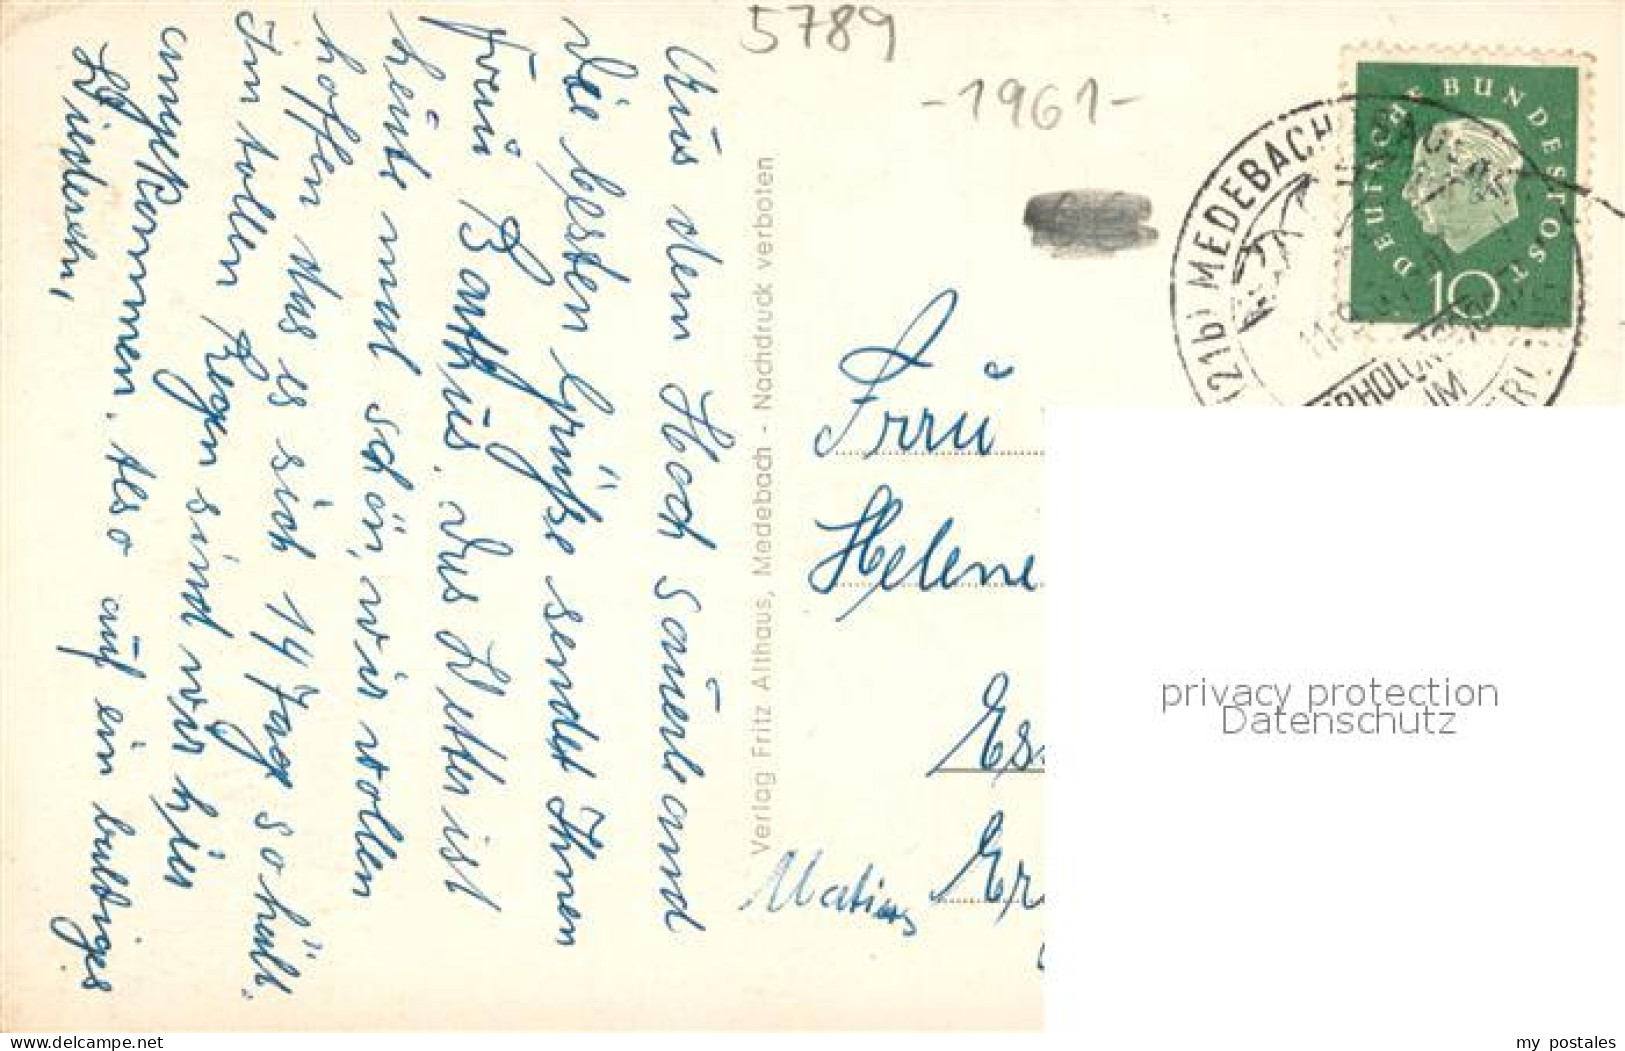 5789
-1961-
Aus dem Hochsauerland
die besten Grüße sendet Ihnen
Frau Bathus. Das Wetter ist
heute mal schön, wir wollen
hoffen das es sich 14 Tage so hält.
Im tollen Regen sind wir hier
angekommen. Also auf ein baldiges
Wiedersehn,
Verlag Fritz Althaus, Medebach - Nachdruck verboten
DEUTSCHE BUNDESPOST
10
(21b) MEDEBACH
IM
Frau
Helene
Es
Er
privacy protection
Datenschutz
www.delcampe.net
my_postales